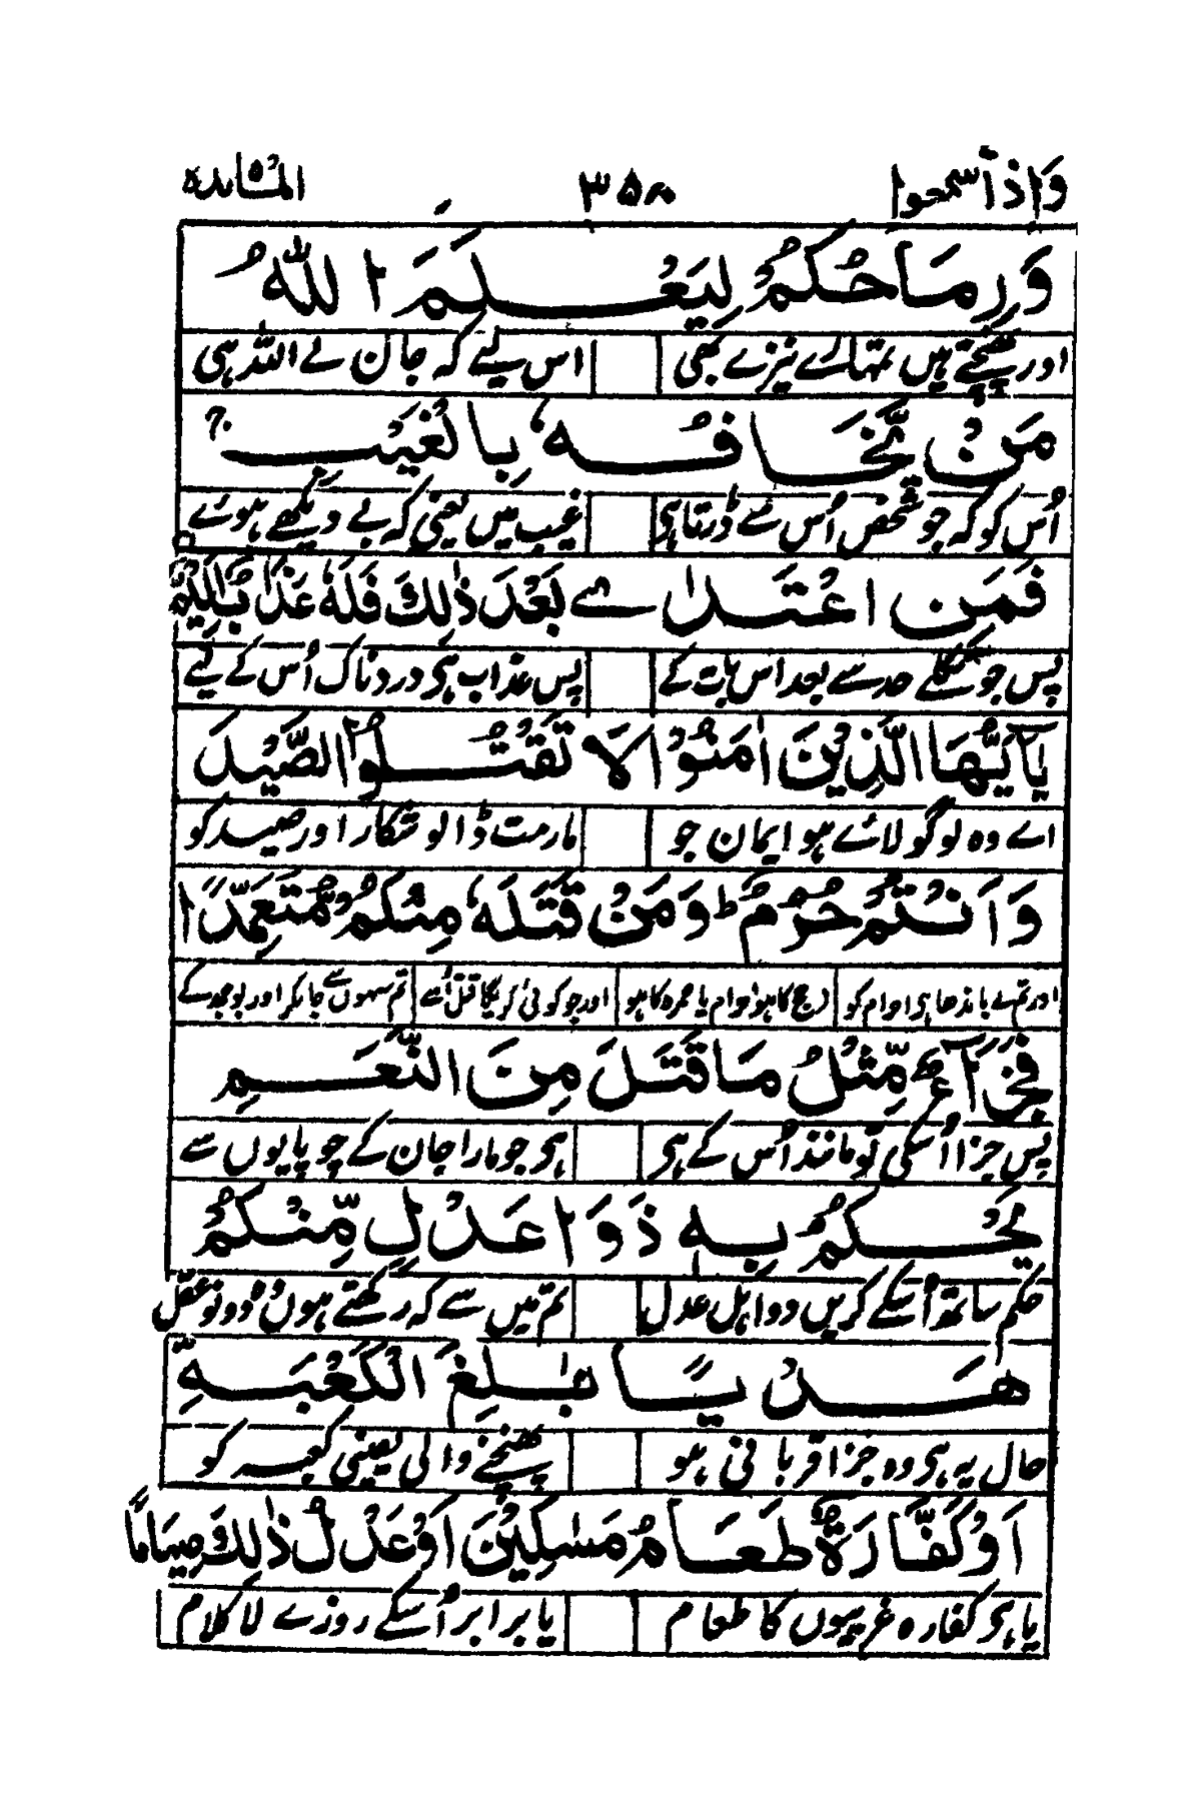 وَاِذَا سمعوا ۳۵۸ المائدہ
وَرِمَاحُكُمْ لِيَعْلَمَ اللّٰهُ
اور پہنچتے ہیں تمہارے نیزے بھی اس لیے کہ جان لے اللہ ہی
مَنْ يَّخَافُهٗ بِالْغَيْبِ ۚ
اُس کو کہ جو شخص اُس سے ڈرتا ہی غیب میں یعنی کہ بے دیکھے ہوے
فَمَنِ اعْتَدٰى بَعْدَ ذٰلِكَ فَلَهٗ عَذَابٌ اَلِيْمٌ
پس جو نکلے حد سے بعد اس بات کے پس عذاب ہی دردناک اُس کے لیے
يٰٓاَيُّهَا الَّذِيْنَ اٰمَنُوْا لَا تَقْتُلُوا الصَّيْدَ
اے وہ لوگو لائے ہو ایمان جو مار مت ڈالو شکار اور صید کو
وَاَنْتُمْ حُرُمٌ ؕ وَمَنْ قَتَلَهٗ مِنْكُمْ مُّتَعَمِّدًا
اور تم نے باندھا ہو احرام کو حج کا ہو احرام یا عمرہ کا ہو اور جو کوئی کریگا قتل اُسے تم سبھوں سے جانکر اور بوجھ کے
فَجَزَآءٌ مِّثْلُ مَا قَتَلَ مِنَ النَّعَمِ
پس جزا اُسکی تو مانند اُس کے ہی ہی جو مارا جان کے چوپایوں سے
يَحْكُمُ بِهٖ ذَوَا عَدْلٍ مِّنْكُمْ
حکم ساتھ اُسکے کریں دو اہل عدل تم میں سے کہ رکھتے ہوں دونو عقل
هَدْيًا بٰلِغَ الْكَعْبَةِ
حال یہ ہی وہ جزا قربانی ہو پہنچنے والی یعنی کعبہ کو
اَوْ كَفَّارَةٌ طَعَامُ مَسٰكِيْنَ اَوْ عَدْلُ ذٰلِكَ صِيَامًا
یا ہی کفارہ غریبوں کا طعام یا برابر اُسکے روزے لا کلام